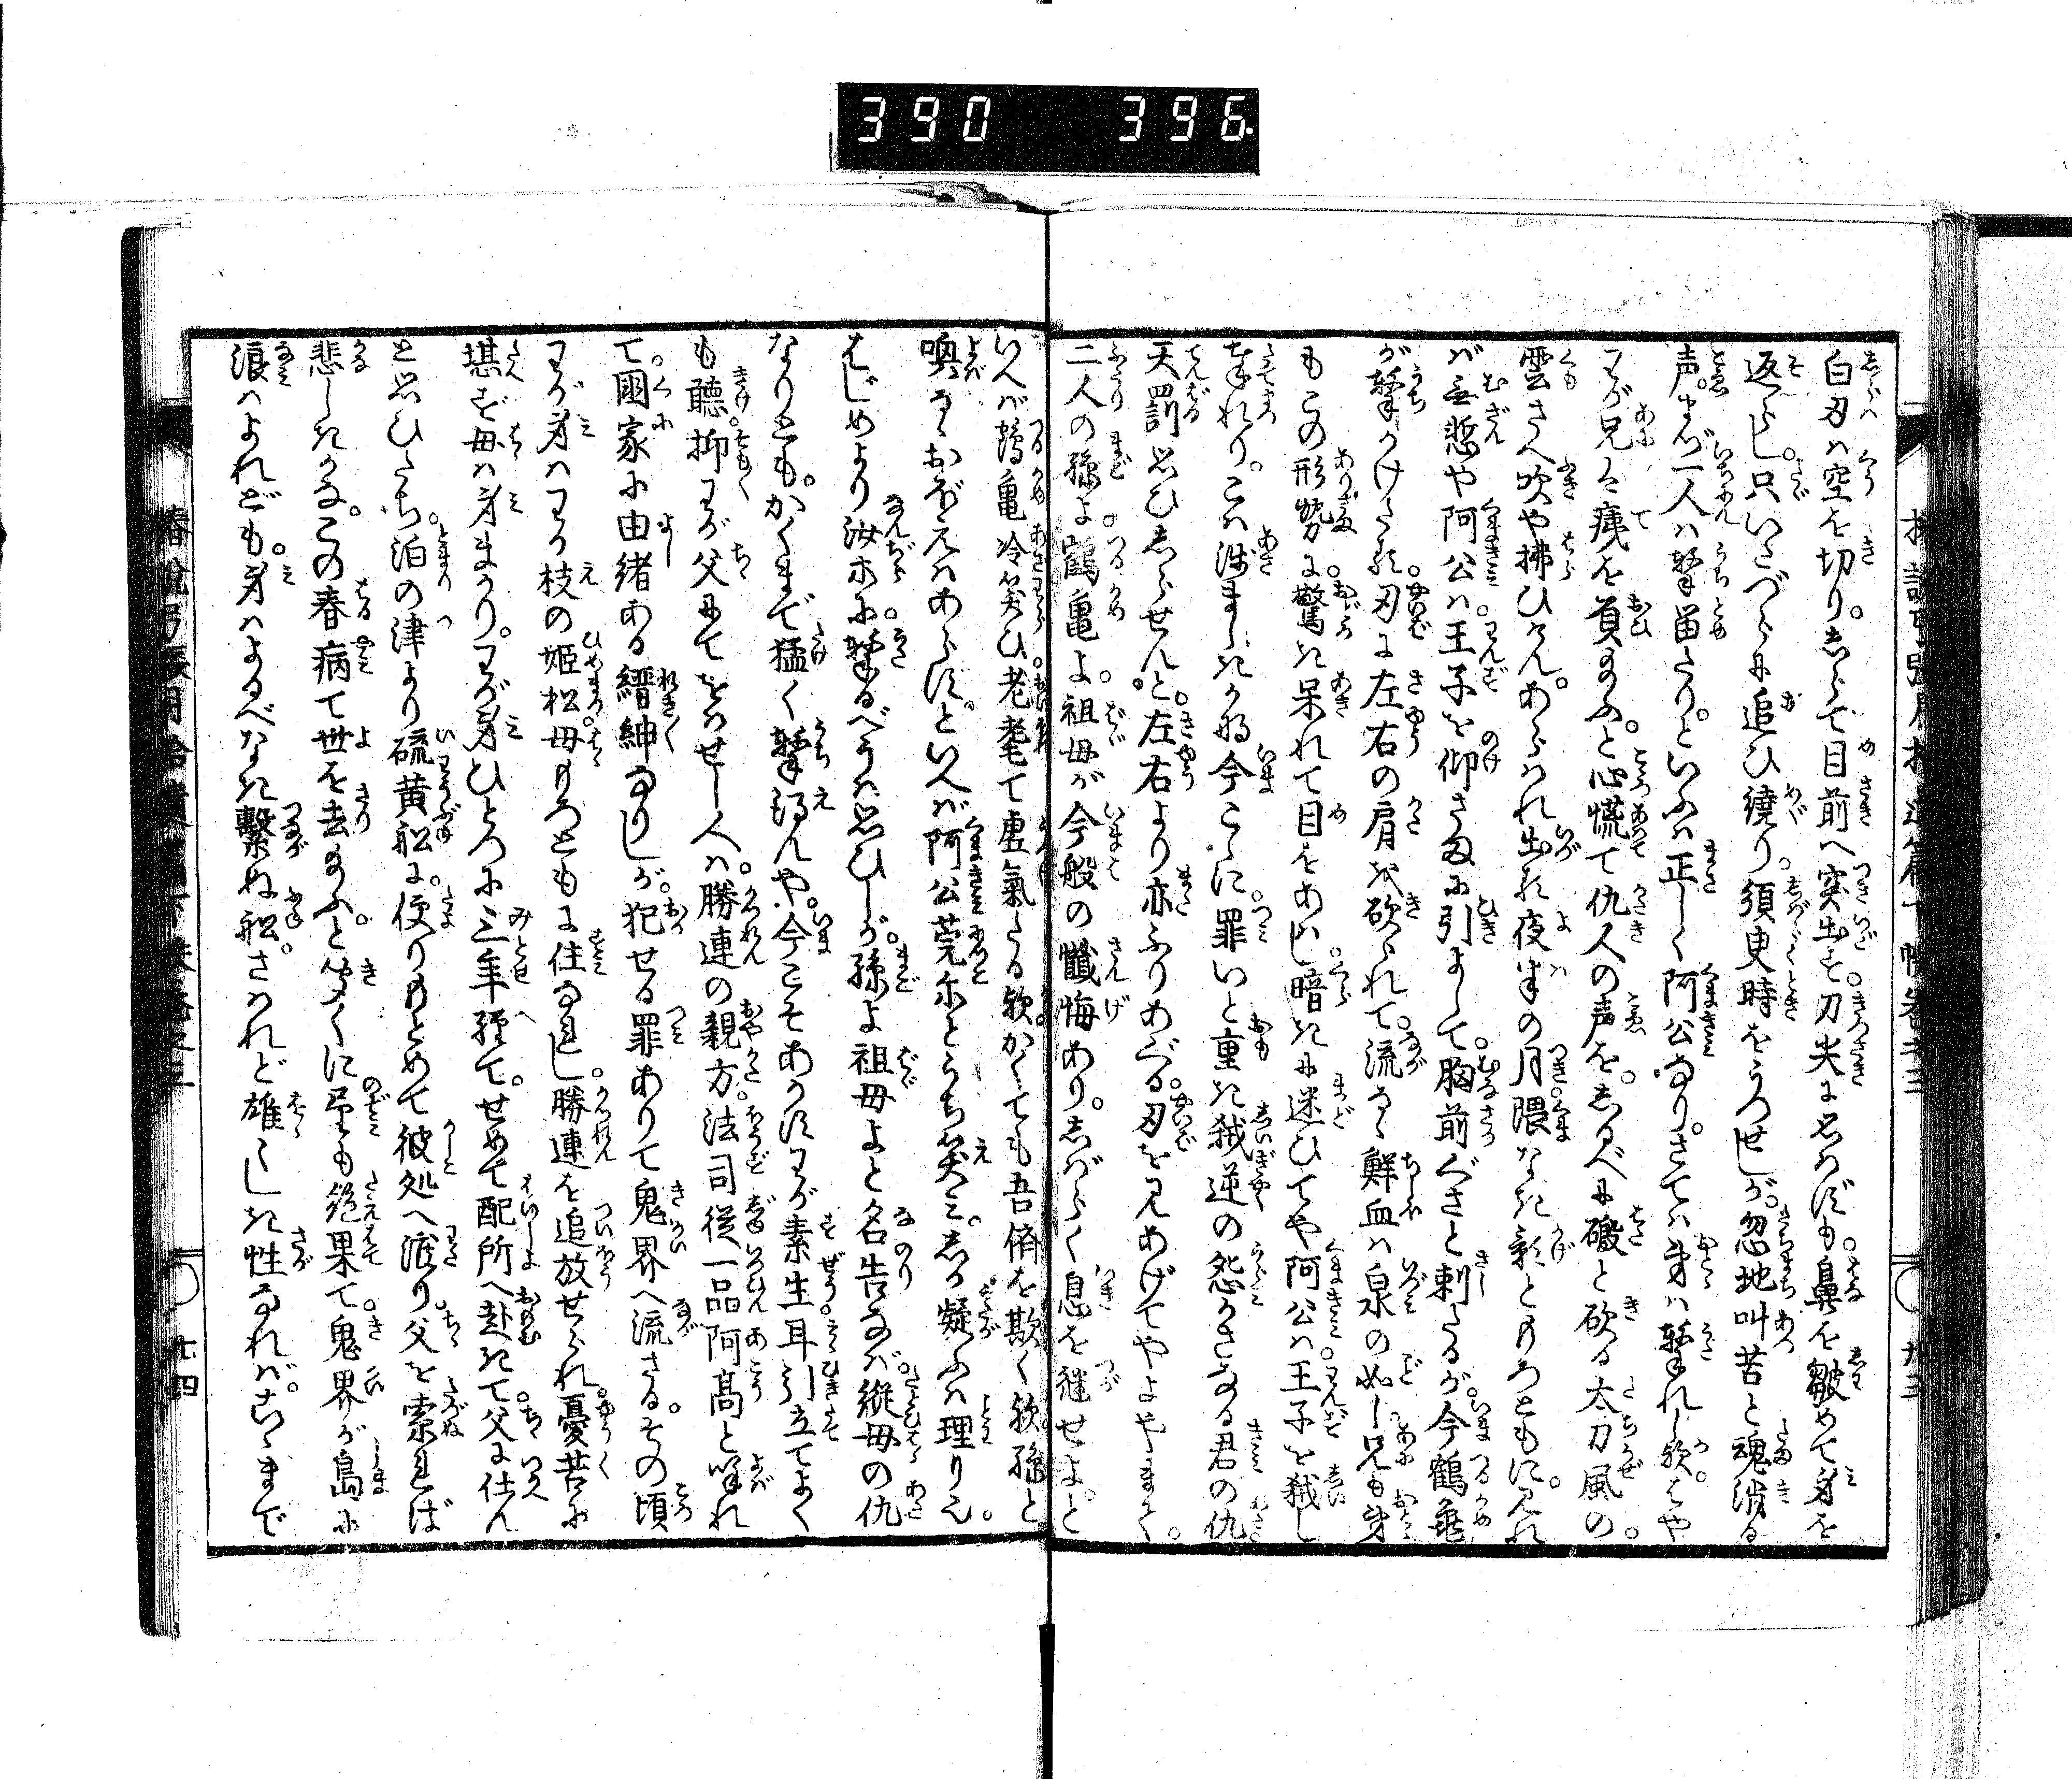 390 396
白刃は空を切り。しらで目前へ突出す。刀尖に名のらずも。鼻を皺めて身を
返らし。只いたづらに追ひ繞り。須臾時をうつせしが。忽地叫苦と魂消る
声。まづ一人は撃留たり。といふは正しく阿公なり。さては弟は撃れし歟。はや
わが兄は痍を負給ふ。と心慌て仇人の声を。しるべに礑と砍る太刀風の。
雲さへ吹や拂ひけん。あらはれ出る夜半の月。隈なき影ともろともに。見れ
ば無慙や阿公は。王子を仰さまに引よして。胸前ぐさと刺たるが。今鶴亀
が撃かけたる。刃に左右の肩を砍られて。流るゝ鮮血は泉の如し。兄も弟
もこの形勢に。驚き呆れて目をあはし。暗きに迷ひてや阿公は。王子を弑し
奉れり。こは浅ましきかな今こゝに。罪いと重き弑逆の怨かさなる君の仇
天罰思ひしらせんと。左右より亦ふりあぐる。刃を見あげてやよやまて。
二人の孫よ。鶴亀よ。祖母が今般の懺悔あり。しばらく息を継せよ。と
いへば鶴亀冷笑ひ。老耄て虚氣たる歟。かくても吾儕を欺く歟。孫と
喚るゝおぼえはあらず。といへば阿公莞尓とうち笑み。しか疑ふは理りや。
はじめより汝ホに。撃るべうは思ひしが。孫よ祖母よと名告なば。縦母の仇
なりとも。かくまで猛く撃得んや。今こそあかすわが素生。耳引立てよく
も聴。抑わが父にてをはせし人は。勝連の親方。法司従一品阿高と喚れ
て。國家に由緒ある縉紳なりしが。犯せる罪ありて鬼界へ流さる。その頃
わが身はわか枝の姫松。母もろともに住なれし。勝連を追放せられ。憂苦に
堪ず母は身まかり。わが身ひとつに三年経て。せめて配所へ赴きて。父に仕ん
と思ひたち。泊の津より硫黄船に。便りもとめて彼処へ渡り父を索れば
悲しきかな。この春病て世を去給ふ。と聞くに望も絶果て。鬼界が島に
浪はよれども。身はよるべなき繋ぬ船。さはれど雄々しき性なれば。こゝまで